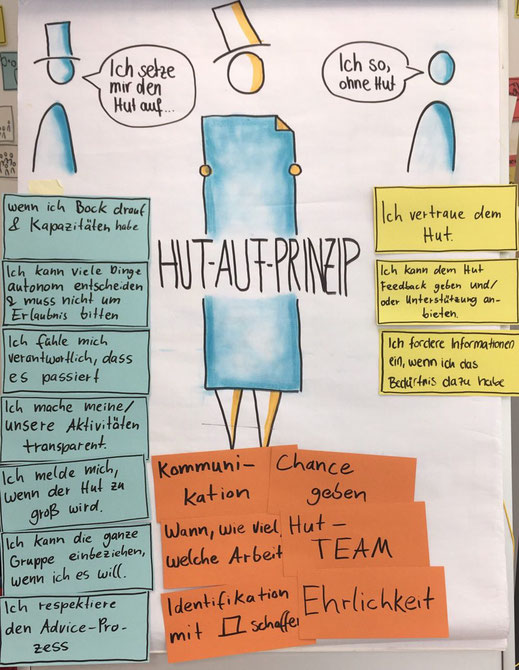 Ich setze
mir den
Hut auf...
Ich so,
ohne Hut
HUT-AUF-PRINZIP
wenn ich Bock drauf
& Kapazitäten habe
Ich kann viele Dinge
autonom entscheiden
& muss nicht um
Erlaubnis bitten
Ich fühle mich
verantwortlich, dass
es passiert
Ich mache meine/
unsere Aktivitäten
transparent.
Ich melde mich,
wenn der Hut zu
groß wird.
Ich kann die ganze
Gruppe einbeziehen,
wenn ich es will.
Ich respektiere
den Advice-Pro-
zess
Ich vertraue dem
Hut.
Ich kann dem Hut
Feedback geben und/
oder Unterstützung an-
bieten.
Ich fordere Informationen
ein, wenn ich das
Bedürfnis dazu habe
Kommuni-
kation
Chance
geben
Wann, wie viel,
welche Arbeit
Hut-
TEAM
Identifikation
mit schaffen
Ehrlichkeit